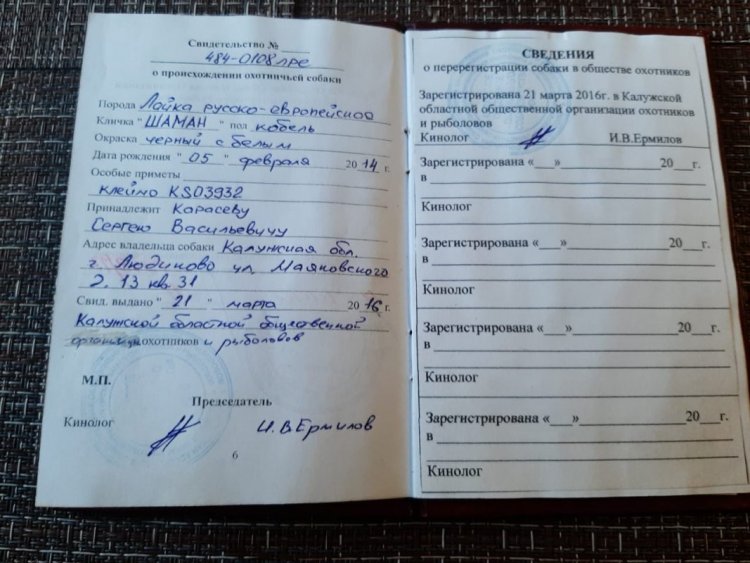 Свидетельство №
484-0108 лре
о происхождении охотничьей собаки
Порода Лайка русско-европейская
Кличка "ШАМАН" пол кобель
Окраска черный с белым
Дата рождения "05" февраля 2014 г.
Особые приметы
клеймо KS03932
Принадлежит Карасеву
Сергею Васильевичу
Адрес владельца собаки Калужская обл.
г. Людиново ул. Маяковского
д. 13 кв. 31
Свид. выдано "21" марта 2016 г.
Калужской областной общественной
организ. охотников и рыболовов
М.П.
Председатель
Кинолог И.В.Ермилов
6
СВЕДЕНИЯ
о перерегистрации собаки в обществе охотников
Зарегистрирована 21 марта 2016г. в Калужской
областной общественной организации охотников
и рыболовов
Кинолог И.В.Ермилов
Зарегистрирована «___»____________20___г.
в
Кинолог
Зарегистрирована «___»____________20___г.
в
Кинолог
Зарегистрирована «___»____________20___г.
в
Кинолог
Зарегистрирована «___»____________20___г.
в
Кинолог